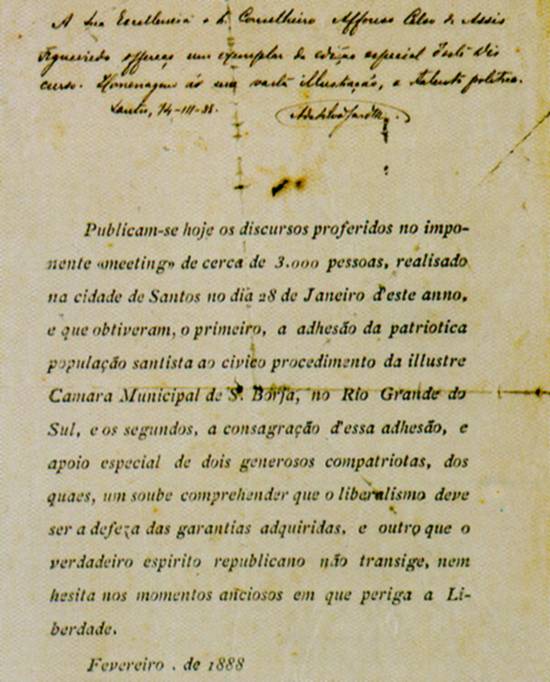 A Sua Excellencia o Sr. Conselheiro Affonso Celso de Assis
Figueiredo offereço um exemplar da edição especial deste dis
curso. Homenagem ás sua vasta illustração, e talento politico.
Santos, 14-III-88.
Publicam-se hoje os discursos proferidos no impo-
nente «meeting» de cerca de 3.000 pessoas, realisado
na cidade de Santos no dia 28 de Janeiro d'este anno,
e que obtiveram, o primeiro, a adhesão da patriotica
população santista ao civico procedimento da illustre
Camara Municipal de S. Borja, no Rio Grande do
Sul, e os segundos, a consagração d'essa adhesão, e
apoio especial de dois generosos compatriotas, dos
quaes, um soube comprehender que o liberalismo deve
ser a defeza das garantias adquiridas, e outro que o
verdadeiro espirito republicano não transige, nem
hesita nos momentos anciosos em que periga a Li-
berdade.
Fevereiro . de 1888